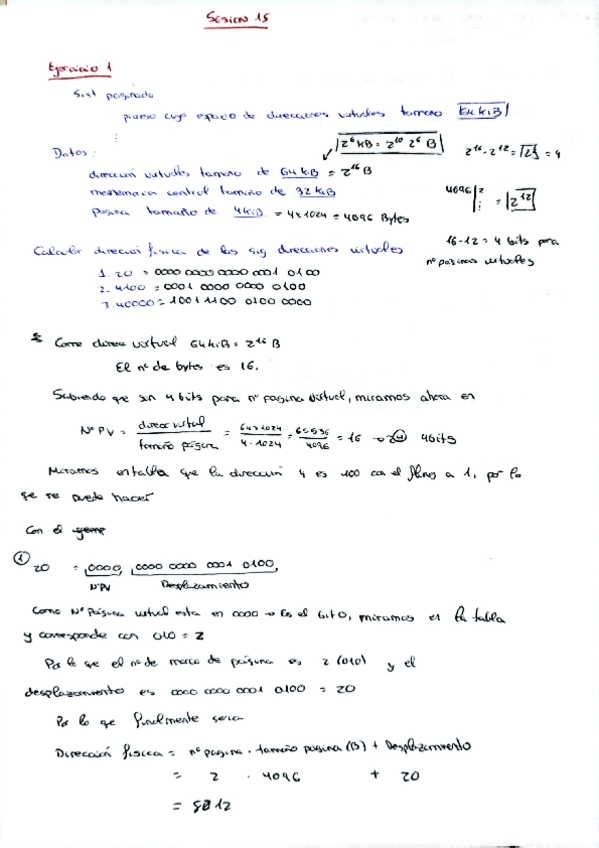 Sesion 15
Ejercicio 1
Sist paginado
proceso cuyo espacio de direcciones virtuales tamaño 64 kiB
⋮
Datos:
2⁶ kB = 2¹⁰ 2⁶ B
2¹⁶-2¹² = 2⁴ = 4
dirección virtuales tamaño de 64 kiB = 2¹⁶ B
memoria central tamaño de 32 kiB
pagina tamaño de 4kiB = 4x1024 = 4096 Bytes
4096 | 2 = 2¹²
16-12 = 4 bits para
nº páginas virtuales
Calcular dirección física de las sig direcciones virtuales
1. 20 = 0000 0000 0001 0100
2. 4100 = 0001 0000 0000 0100
3. 40000 = 1001 1100 0100 0000
Como direcc virtual 64kiB = 2¹⁶ B
El nº de bytes es 16.
Sabiendo que son 4 bits para nº pagina virtual, miramos ahora en
Nº PV = direcc virtual / tamaño página = 64x1024 / 4·1024 = 65536 / 4096 = 16 → 2⁴ 4bits
Miramos en tabla que la dirección 4 es 100 con el flag a 1, por lo
que se puede hacer
Con el
① 20 = 0000 0000 0000 0001 0100
NºPV Desplazamiento
Como Nº Página virtual esta en 0000 → Es el bit 0, miramos en la tabla
y corresponde con 010 = 2
Por lo que el nº de marco de página es 2 (010) y el
desplazamiento es 0000 0000 0001 0100 = 20
Por lo que finalmente seria
Dirección física = nº pagina · tamaño pagina (B) + Desplazamiento
= 2 · 4096 + 20
= 8212